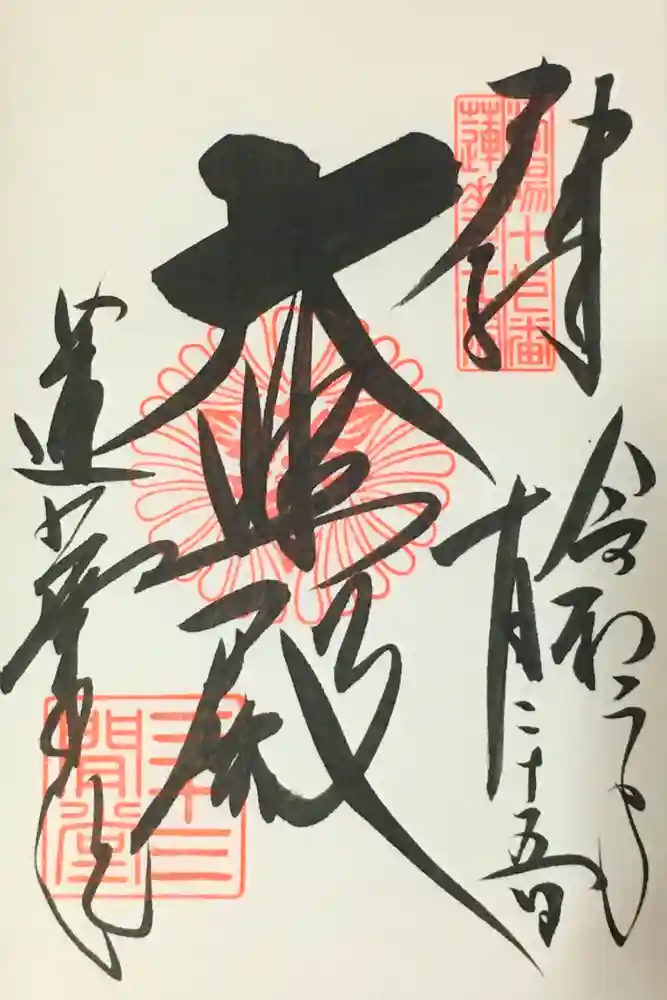 奉拝
洛陽十七番
蓮華王院
令和二年
十月二十五日
大悲殿
蓮華王院
三十三
間堂